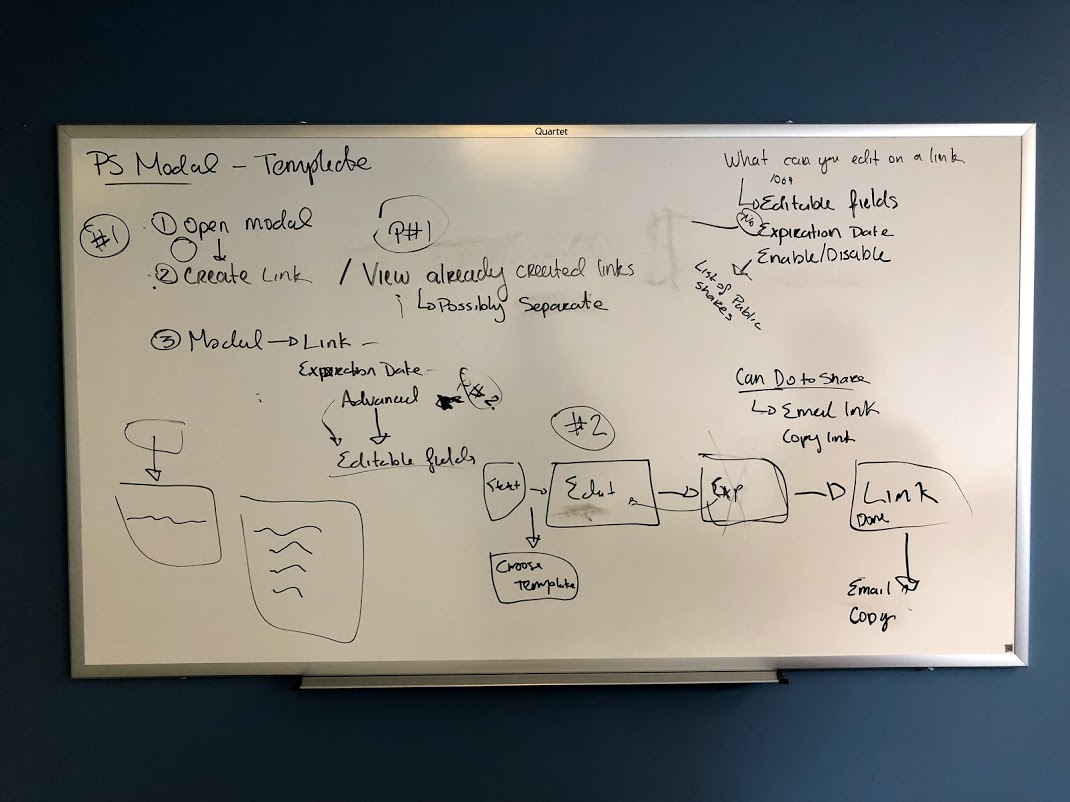 Quartet
PS Modal - Templete
#1
① Open modal
② Create Link / View already created links
↳ Possibly Separate
P#1
③ Modal → Link -
Expiration Date -
Advanced
#2
Editable fields
What can you edit on a link
↳ Editable fields
No
Expiration Date
Enable/Disable
List of Public
shares
Can Do to Share
↳ Email link
Copy link
#2
Start → Edit → Exp → Link
Done
Choose
Template
Email
Copy